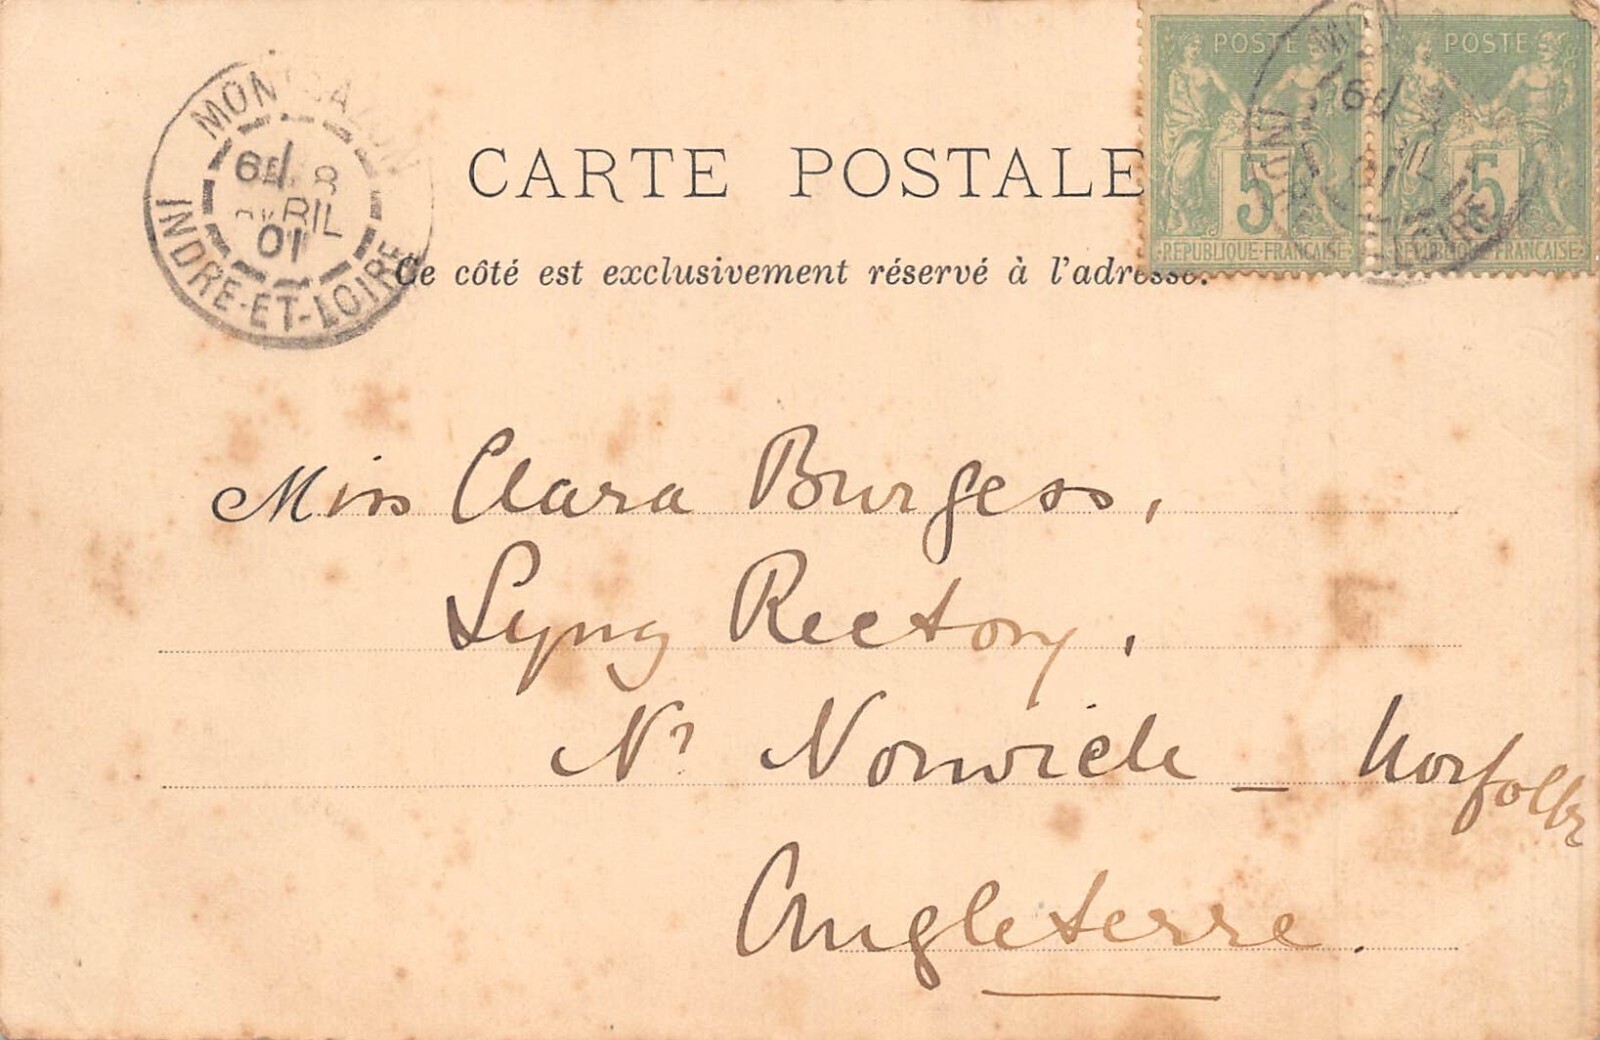 MONTBAZON
6E 8
AVRIL
01
INDRE-ET-LOIRE
POSTE
5
RÉPUBLIQUE-FRANÇAISE
POSTE
5
RÉPUBLIQUE-FRANÇAISE
6E
01
INDRE LOIRE
CARTE POSTALE
Ce côté est exclusivement réservé à l'adresse.
Miss Clara Burgess,
Lyng Rectory,
Nr Norwich – Norfolk
Angleterre.